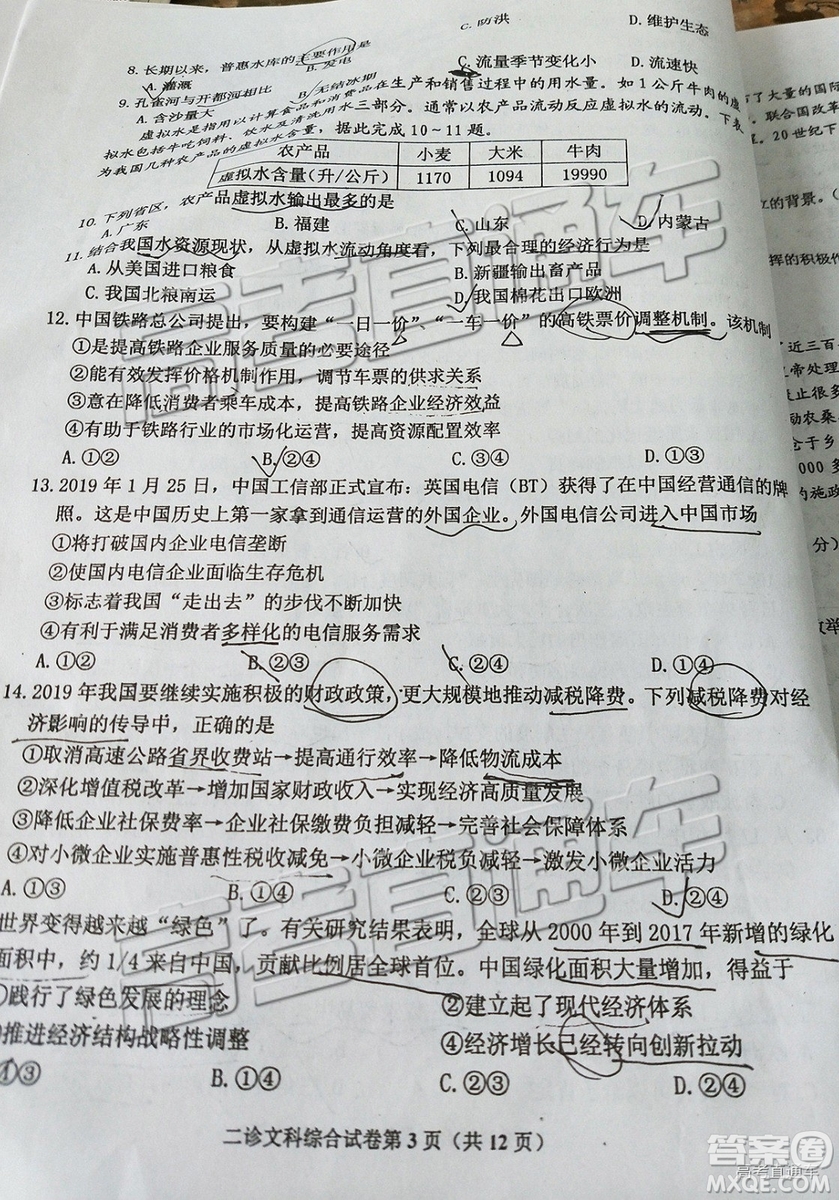 C. 防洪 D. 维护生态
8. 长期以来，普惠水库的主要作用是
A. 灌溉 B. 发电
9. 孔雀河与开都河相比
A. 含沙量大 B. 无结冰期 C. 流量季节变化小 D. 流速快
虚拟水是指用以计算食品和消费品在生产和销售过程中的用水量。如1公斤牛肉的虚
拟水包括牛吃饲料、饮水及清洗用水三部分。通常以农产品流动反应虚拟水的流动。下表
为我国几种农产品的虚拟水含量，据此完成10～11题。
农产品 小麦 大米 牛肉
虚拟水含量（升/公斤） 1170 1094 19990
10. 下列省区，农产品虚拟水输出最多的是
A. 广东 B. 福建 C. 山东 D. 内蒙古
11. 结合我国水资源现状，从虚拟水流动角度看，下列最合理的经济行为是
A. 从美国进口粮食 B. 新疆输出畜产品
C. 我国北粮南运 D. 我国棉花出口欧洲
12. 中国铁路总公司提出，要构建“一日一价”、“一车一价”的高铁票价调整机制。该机制
①是提高铁路企业服务质量的必要途径
②能有效发挥价格机制作用，调节车票的供求关系
③意在降低消费者乘车成本，提高铁路企业经济效益
④有助于铁路行业的市场化运营，提高资源配置效率
A. ①② B. ②④ C. ①③ D. ③④
13. 2019年1月25日，中国工信部正式宣布：英国电信（BT）获得了在中国经营通信的牌
照。这是中国历史上第一家拿到通信运营的外国企业。外国电信公司进入中国市场
①将打破国内企业电信垄断
②使国内电信企业面临生存危机
③标志着我国“走出去”的步伐不断加快
④有利于满足消费者多样化的电信服务需求
A. ①② B. ②③ C. ③④ D. ①④
14. 2019年我国要继续实施积极的财政政策，更大规模地推动减税降费。下列减税降费对经
济影响的传导中，正确的是
①取消高速公路省界收费站→提高通行效率→降低物流成本
②深化增值税改革→增加国家财政收入→实现经济高质量发展
③降低企业社保费率→企业社保缴费负担减轻→完善社会保障体系
④对小微企业实施普惠性税收减免→小微企业税负减轻→激发小微企业活力
A. ①③ B. ①④ C. ②③ D. ②④
世界变得越来越“绿色”了。有关研究结果表明，全球从2000年到2017年新增的绿化
面积中，约1/4来自中国，贡献比例居全球首位。中国绿化面积大量增加，得益于
①践行了绿色发展的理念 ②建立起了现代经济体系
推进经济结构战略性调整 ④经济增长已经转向创新拉动
①③ B. ①④ C. ②③ D. ②④
二诊文科综合试卷第3页（共12页）
了大量的国际
联合国改革
20世纪下
的背景。
挥的积极作
近三百
000多
的施政
分）
高考直通车
高考直通车
答案卷
MXQE.COM
高考直通车